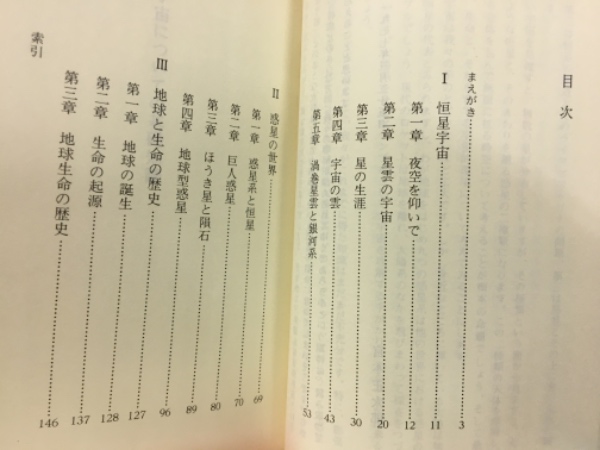 目次
まえがき……3
I 恒星宇宙……11
第一章 夜空を仰いで……12
第二章 星雲の宇宙……20
第三章 星の生涯……30
第四章 宇宙の雲……43
第五章 渦巻星雲と銀河系……53
II 惑星の世界……69
第一章 惑星系と恒星……70
第二章 巨人惑星……80
第三章 ほうき星と隕石……89
第四章 地球型惑星……96
III 地球と生命の歴史……127
第一章 地球の誕生……128
第二章 生命の起源……137
第三章 地球生命の歴史……146
索引